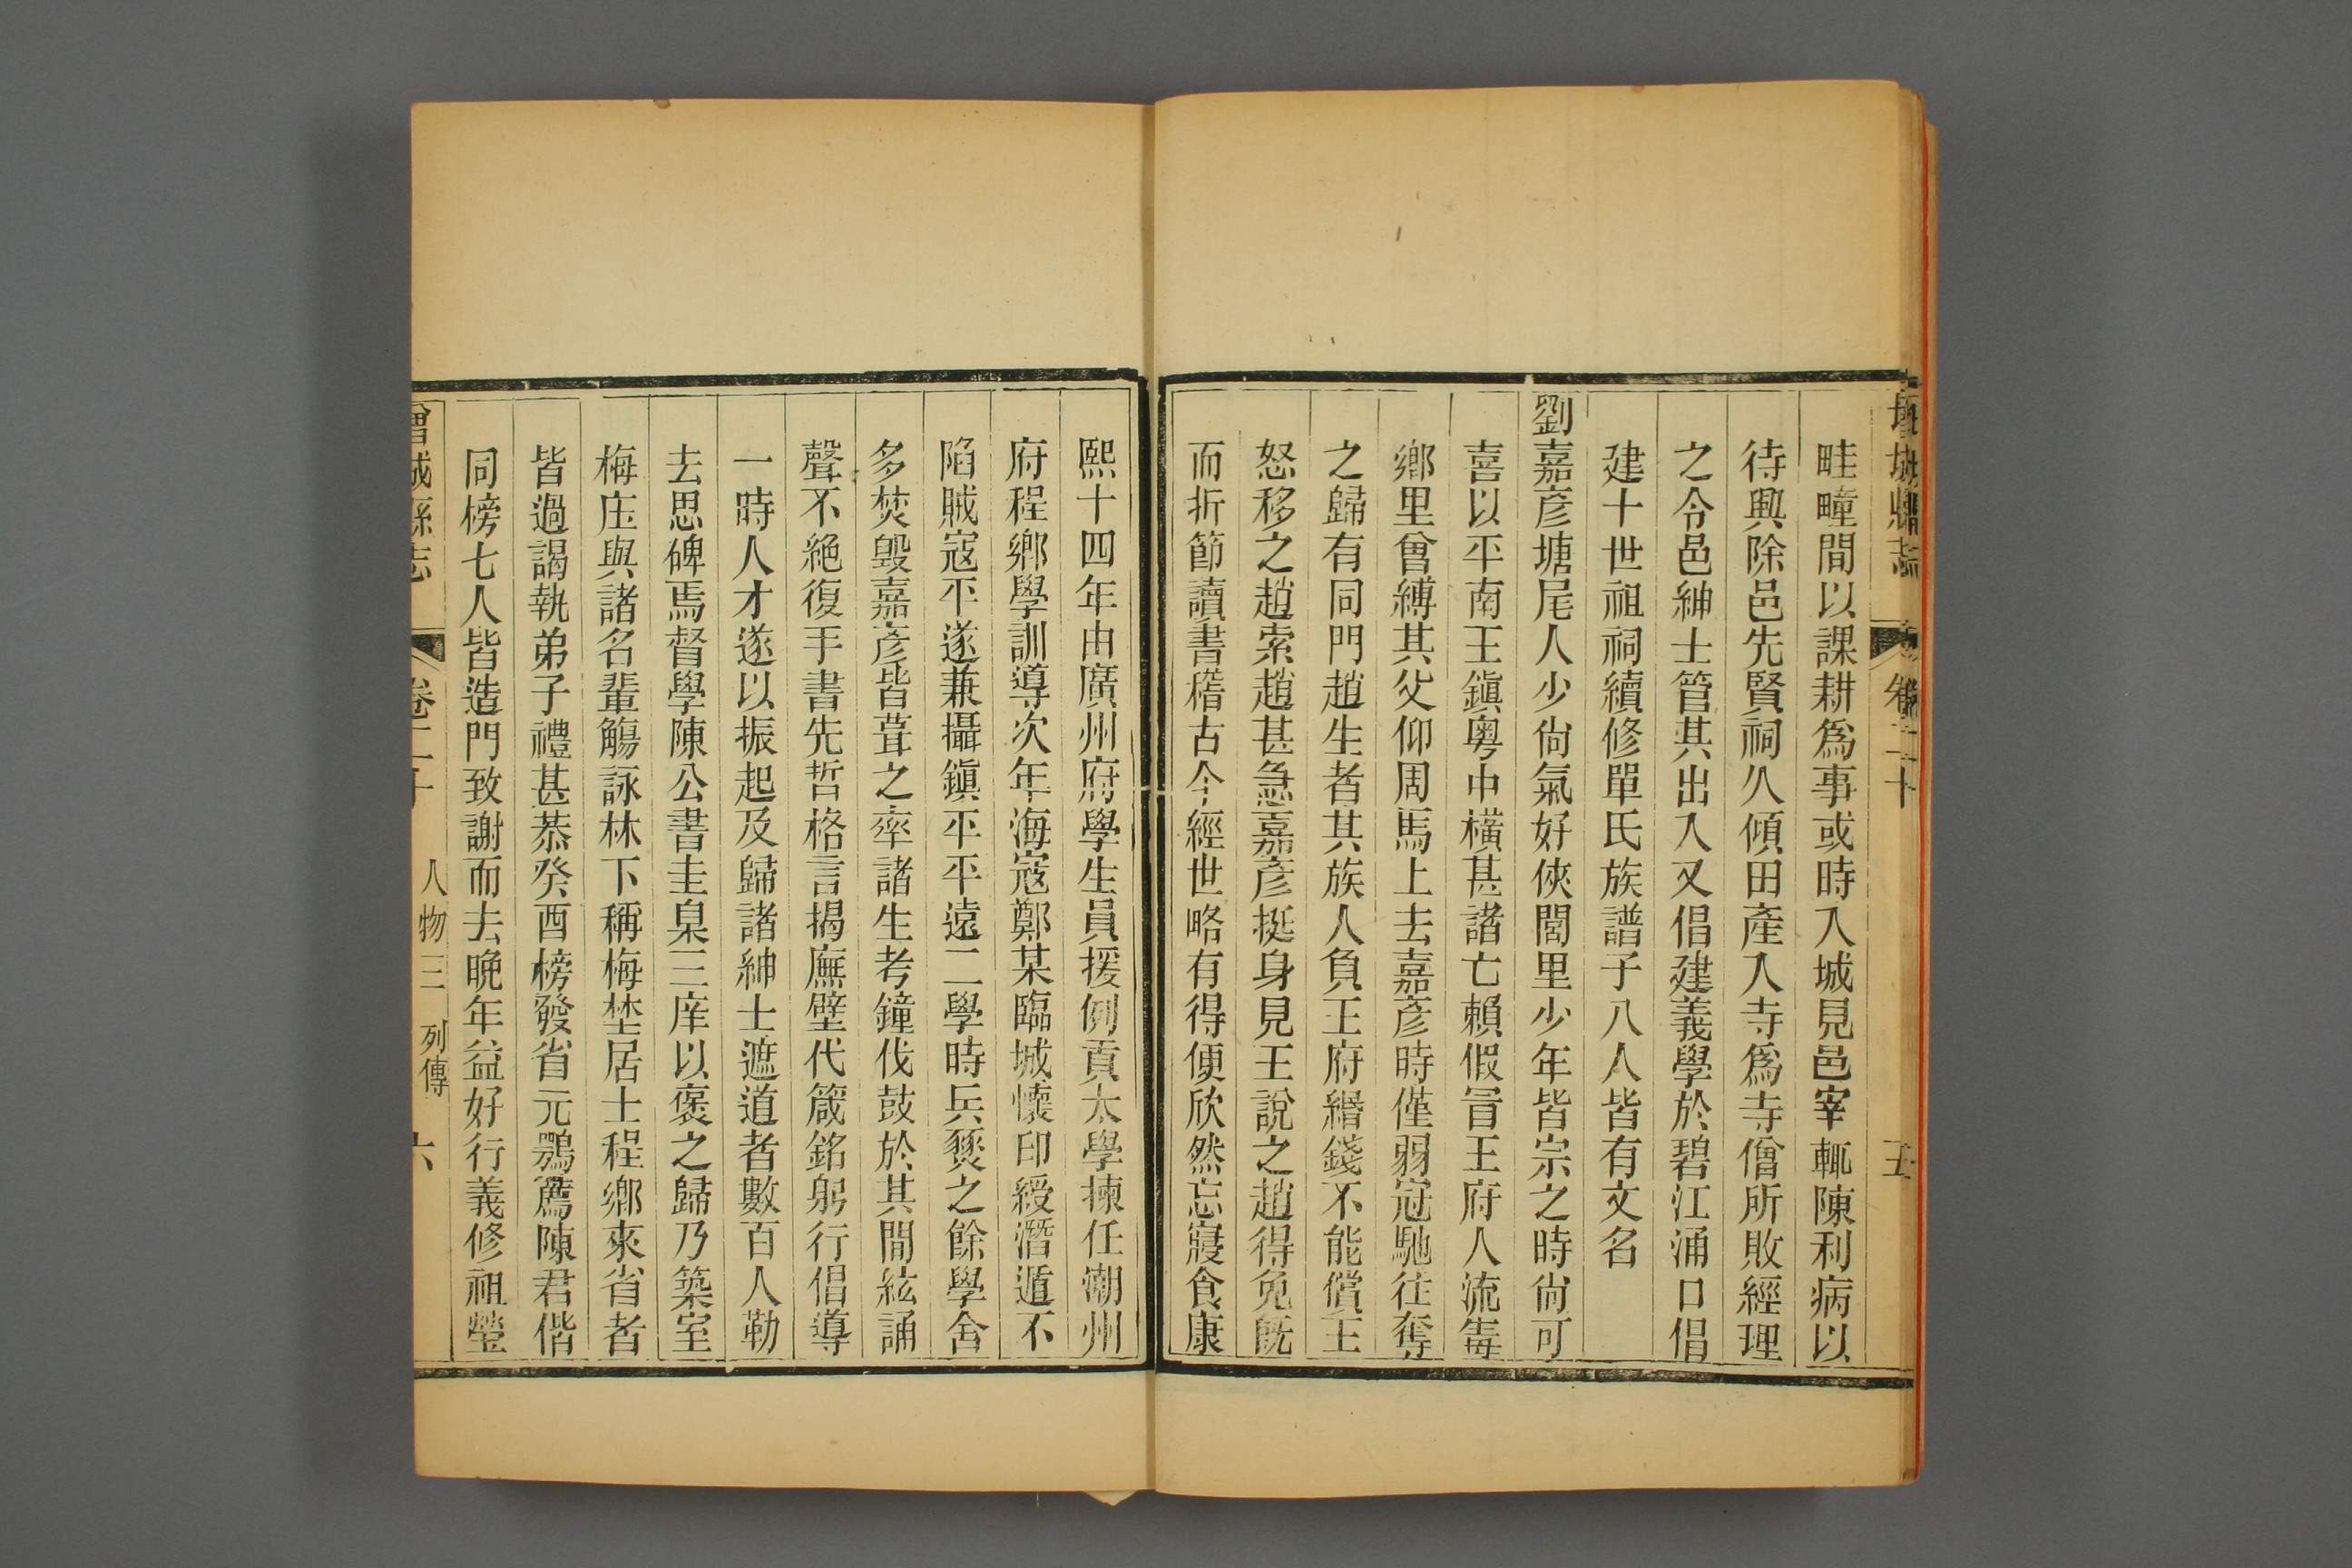 增城縣志
卷二十
五
畦疃間以課耕爲事或時入城見邑宰輒陳利病以
待興除邑先賢祠久傾田產入寺爲寺僧所敗經理
之令邑紳士管其出入又倡建義學於碧江涌口倡
建十世祖祠續修單氏族譜子八人皆有文名
劉嘉彥塘尾人少尙氣好俠閭里少年皆宗之時尙可
喜以平南王鎭粵中橫甚諸亡賴假冐王府人流毒
鄉里曾縛其父仰周馬上去嘉彥時僅弱冠馳往奪
之歸有同門趙生者其族人負王府緡錢不能償王
怒移之趙索趙甚急嘉彥挺身見王說之趙得免旣
而折節讀書稽古今經世略有得便欣然忘寢食康
熙十四年由廣州府學生員援例貢太學揀任潮州
府程鄉學訓導次年海寇鄭某臨城懷印綬潛遁不
陷賊寇平遂兼攝鎭平平遠二學時兵燹之餘學舍
多焚毀嘉彥皆葺之率諸生考鐘伐鼓於其間絃誦
聲不絶復手書先哲格言揭廡壁代箴銘躬行倡導
一時人才遂以振起及歸諸紳士遮道者數百人勒
去思碑焉督學陳公書圭臬三庠以褒之歸乃築室
梅庄與諸名輩觴詠林下稱梅埜居士程鄉來省者
皆過謁執弟子禮甚恭癸酉榜發省元鶚薦陳君偕
同榜七人皆造門致謝而去晚年益好行義修祖瑩
曾城縣志
卷二十
人物三 列傳
六